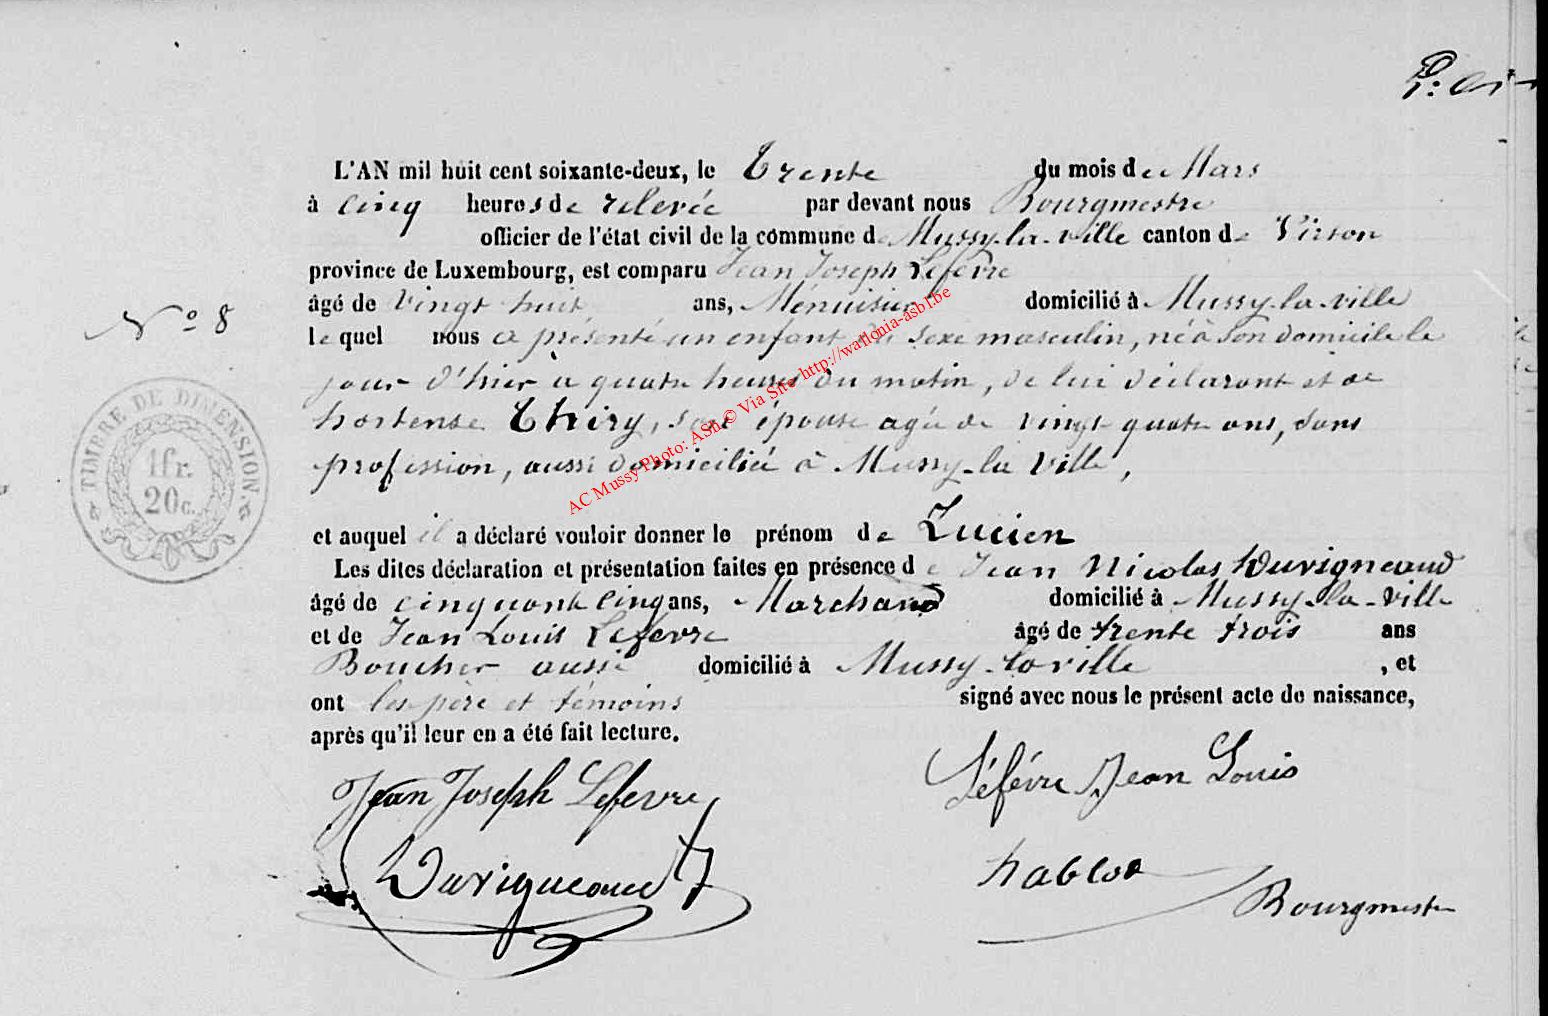 L'AN mil huit cent soixante-deux, le Trente du mois de Mars
à cinq heures de relevée par devant nous Bourgmestre
officier de l'état civil de la commune de Mussy-la-ville canton de Virton
province de Luxembourg, est comparu Jean Joseph Lefevre
âgé de vingt huit ans, Ménuisier domicilié à Mussy-la-ville
N° 8
lequel nous a présenté un enfant du sexe masculin, né à son domicile le
jour d'hier à quatre heures du matin, de lui déclarant et de
hortense Thiry, son épouse agée de vingt quatre ans, sans
profession, aussi domiciliée à Mussy-la Ville,
TIMBRE DE DIMENSION.
1fr.
20c.
AC Mussy Photo: ASh © Via Site http://wallonia-asbl.be
et auquel il a déclaré vouloir donner le prénom de Lucien
Les dites déclaration et présentation faites en présence de Jean Nicolas Duvigneaud
âgé de cinquante cinq ans, Marchand domicilié à Mussy-la-Ville
et de Jean Louis Lefevre âgé de trente trois ans
Boucher aussi domicilié à Mussy-la ville, et
ont les père et témoins signé avec nous le présent acte de naissance,
après qu'il leur en a été fait lecture.
Jean Joseph Lefevre
Léfévre Jean Louis
Duvigneaud
Bourgmestre